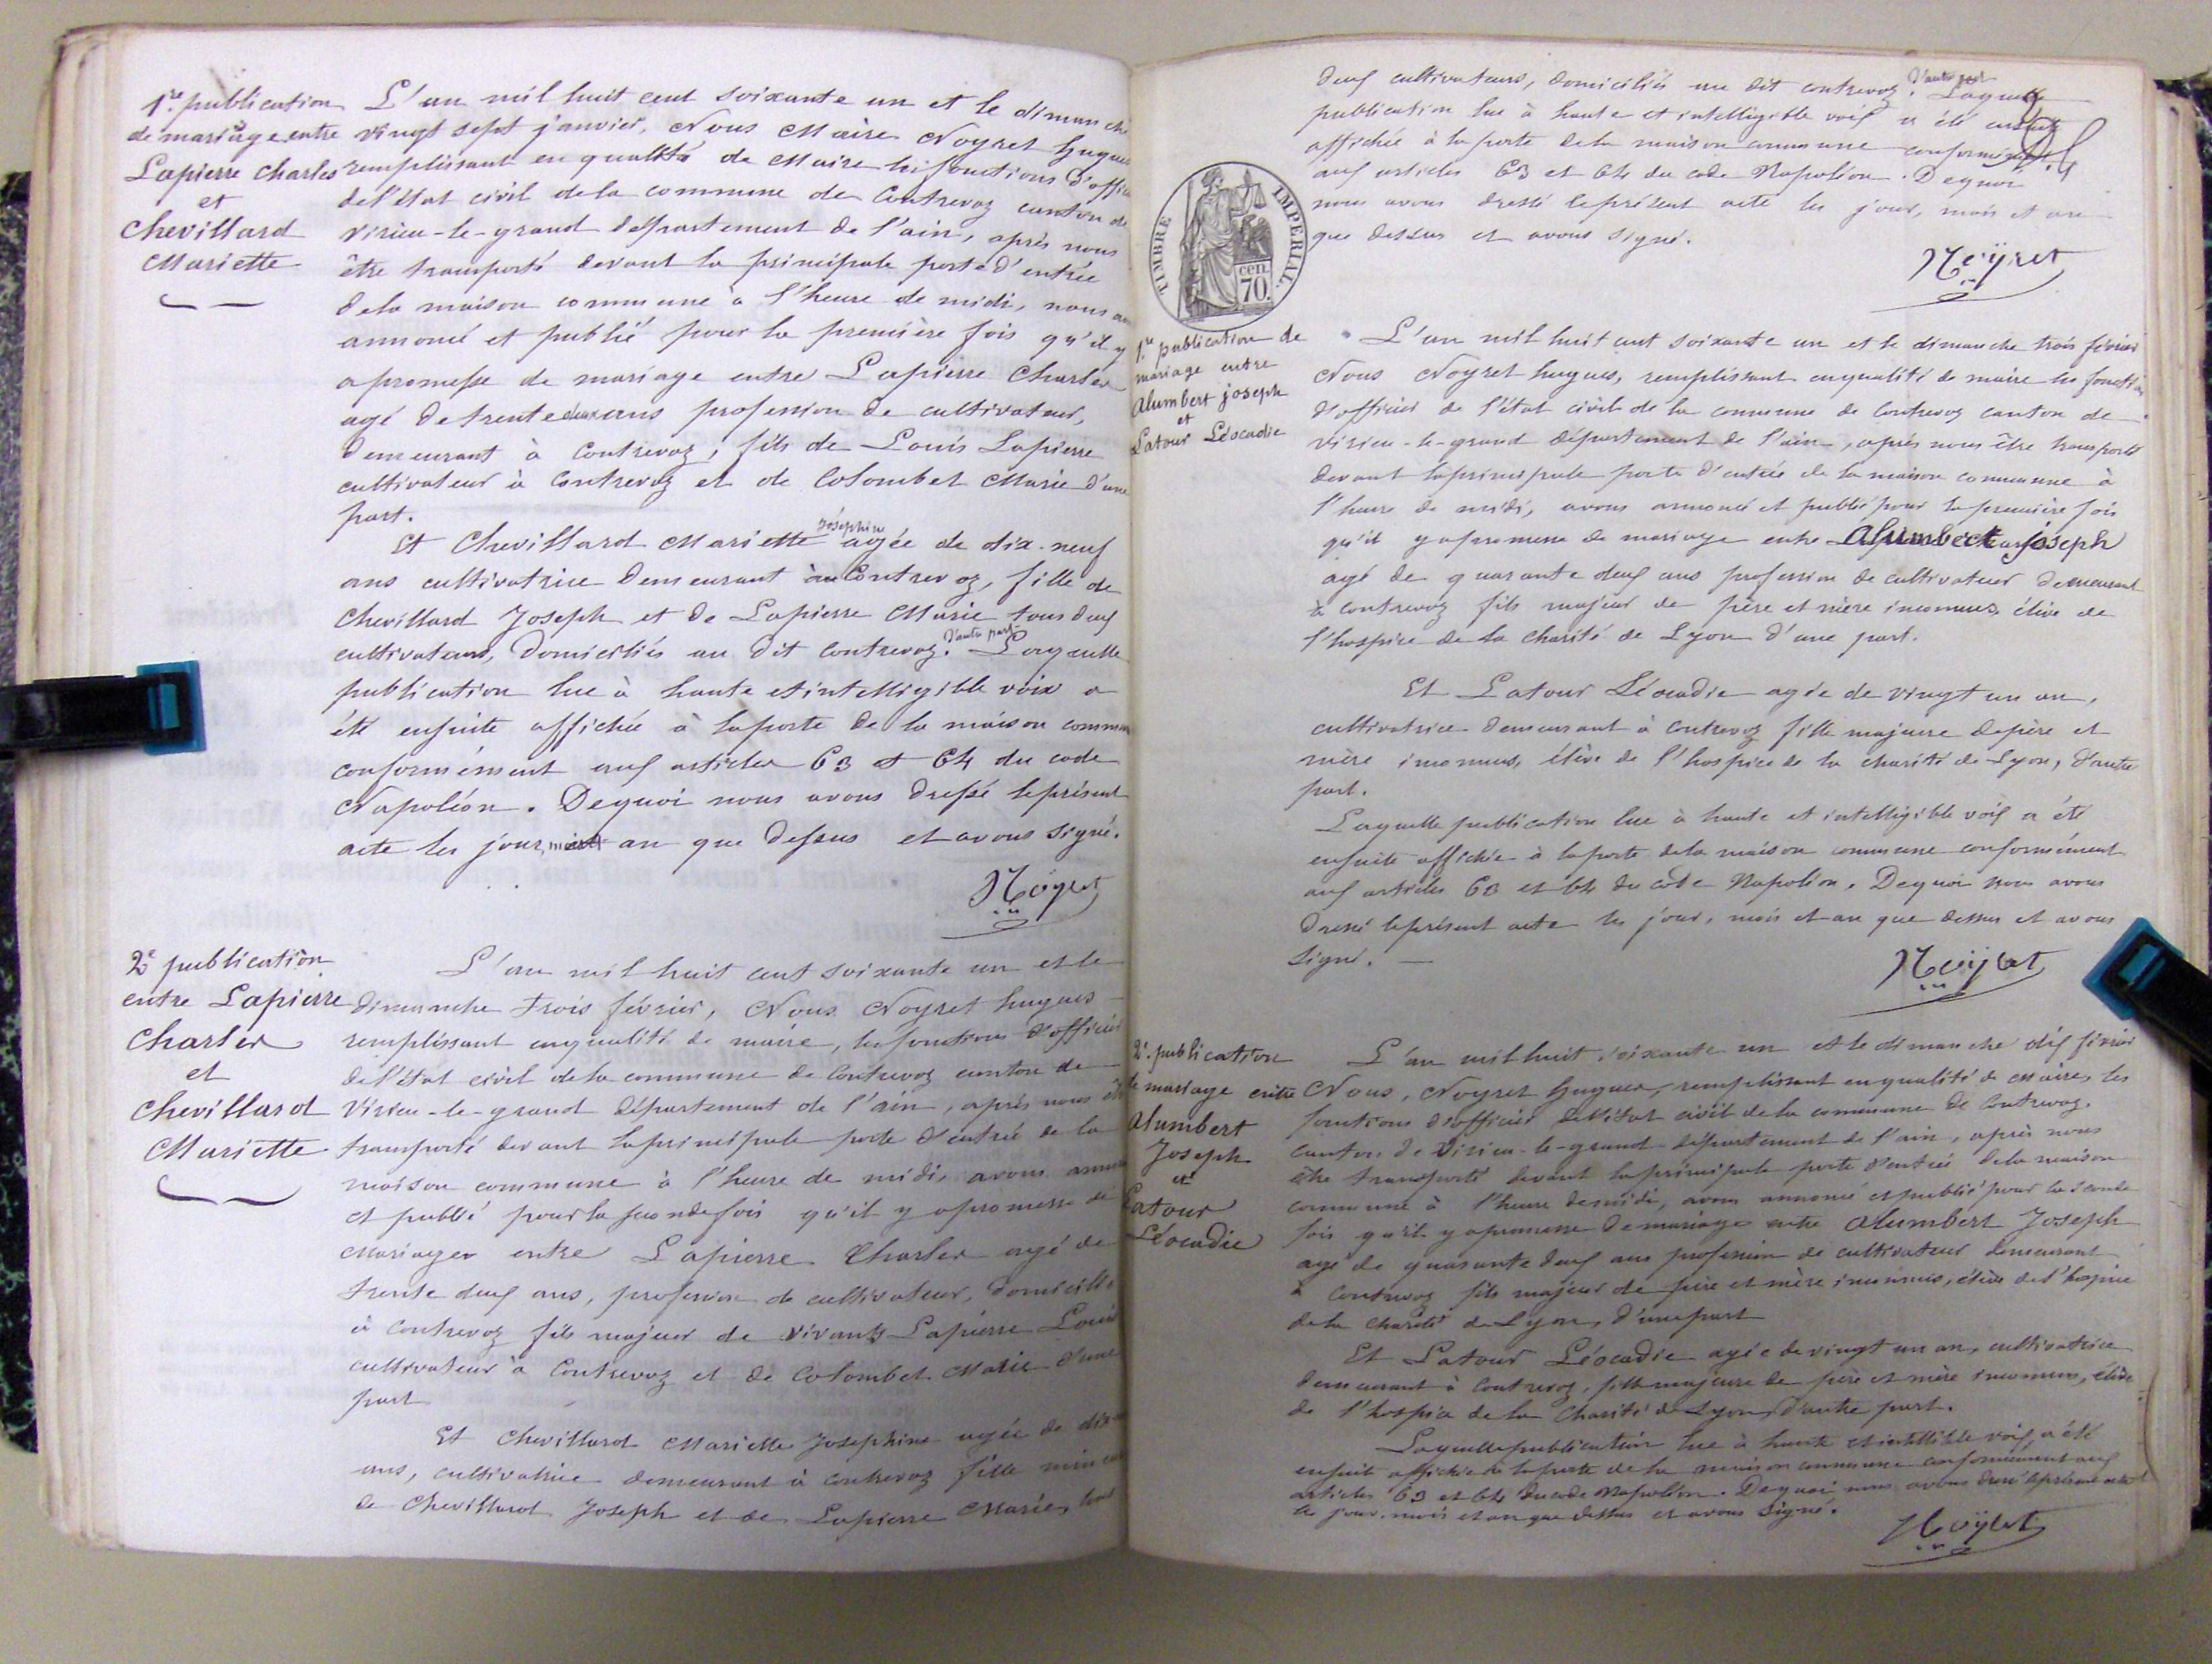 1re publication
de mariage entre
Lapierre Charles
et
Chevillard
Mariette
L'an mil huit cent soixante un et le dimanche
vingt sept janvier, Nous Maire Noyret hugues
remplissant en qualité de Maire les fonctions d'offici
de l'état civil de la commune de Contrevoz canton de
virieu-le-grand département de l'ain, après nous
être transporté devant la principale porte d'entrée
de la maison commune à l'heure de midi, nous av
annoncé et publié pour la première fois qu'il y
a promesse de mariage entre Lapierre Charles
agé de trente deux ans profession de cultivateur,
demeurant à Contrevoz, fils de Louis Lapierre
cultivateur à Contrevoz et de Colombet Marie d'une
part.
Et Chevillard Mariette joséphine agée de dix-neuf
ans cultivatrice demeurant à Contrevoz, fille de
Chevillard Joseph et de Lapierre Marie tous deux
cultivateurs, domiciliés au dit contrevoz. d'autre part Laquelle
publication lue à haute et intelligible voix a
été ensuite affichée à la porte de la maison commun
conformément aux articles 63 et 64 du code
Napoléon. De quoi nous avons dressé le présent
acte les jour, mois et an que dessus et avons signé.
Noÿret
2e publication
entre Lapierre
Charles
et
Chevillard
Mariette
L'an mil huit cent soixante un et le
dimanche trois février, Nous Noyret hugues
remplissant en qualité de maire, les fonctions d'officier
de l'état civil de la commune de Contrevoz canton de
Virieu-le-grand département de l'ain, après nous êtr
transporté devant la principale porte d'entrée de la
maison commune à l'heure de midi, avons annon
et publié pour la seconde fois qu'il y a promesse de
Mariages entre Lapierre Charles agé de
trente deux ans, profession de cultivateur, domicilié
à Contrevoz fils majeur de vivants Lapierre Louis
cultivateur à Contrevoz et de Colombet Marie d'une
part
Et Chevillard Mariette Josephine agée de dix
ans, cultivatrice demeurant à contrevoz fille mineure
de Chevillard Joseph et de Lapierre Marie, tous
deux cultivateurs, domiciliés au dit contrevoz. d'autre part Laquelle
publication lue à haute et intelligible voix a été ensuite
affichée à la porte de la maison commune conformément
aux articles 63 et 64 du code Napoléon. De quoi
nous avons dressé le présent acte les jour, mois et an
que dessus et avons signé.
Noÿret
TIMBRE IMPERIAL
70 cen.
1re publication de
mariage entre
Alumbert joseph
et
Latour Léocadie
L'an mil huit cent soixante un et le dimanche trois février
Nous Noyret hugues, remplissant en qualité de maire les fonctions
d'officier de l'état civil de la commune de Contrevoz canton de
virieu-le-grand département de l'ain, après nous être transporté
devant la principale porte d'entrée de la maison commune à
l'heure de midi, avons annoncé et publié pour la première fois
qu'il y a promesse de mariage entre Alumbert joseph
agé de quarante deux ans profession de cultivateur demeurant
à Contrevoz fils majeur de père et mère inconnus, élève de
l'hospice de la charité de Lyon d'une part.
Et Latour Léocadie agée de vingt un an,
cultivatrice demeurant à Contrevoz fille majeure de père et
mère inconnus, élève de l'hospice de la charité de Lyon, d'autre
part.
Laquelle publication lue à haute et intelligible voix a été
ensuite affichée à la porte de la maison commune conformément
aux articles 63 et 64 du code Napoléon. De quoi nous avons
dressé le présent acte les jour, mois et an que dessus et avons
signé.
Noÿret
2e publication
de mariage entre
Alumbert
Joseph
et
Latour
Léocadie
L'an mil huit soixante un et le dimanche dix février
Nous, Noyret hugues, remplissant en qualité de Maire, les
fonctions d'officier de l'état civil de la commune de Contrevoz
canton de Virieu-le-grand département de l'ain, après nous
être transporté devant la principale porte d'entrée de la maison
commune à l'heure de midi, avons annoncé et publié pour la seconde
fois qu'il y a promesse de mariage entre Alumbert Joseph
agé de quarante deux ans profession de cultivateur demeurant
à Contrevoz fils majeur de père et mère inconnus, élève de l'hospice
de la charité de Lyon, d'une part
Et Latour Léocadie agée de vingt un an, cultivatrice
demeurant à Contrevoz, fille majeure de père et mère inconnus, élève
de l'hospice de la Charité de Lyon, d'autre part.
Laquelle publication lue à haute et intellible voix a été
ensuite affichée à la porte de la maison commune conformément aux
articles 63 et 64 du code Napoléon. De quoi nous avons dressé le présent acte
les jour, mois et an que dessus et avons signé.
Noÿret